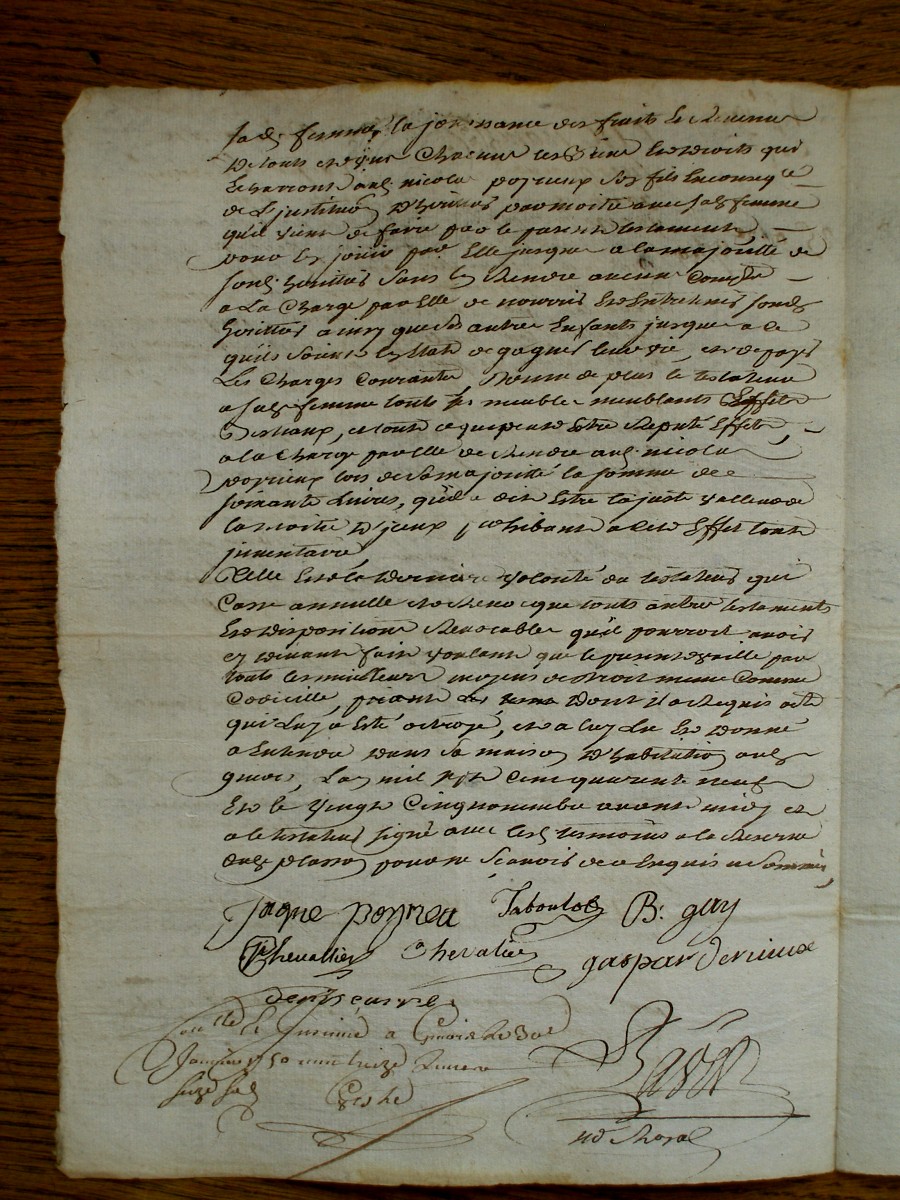 sad. femme la jouissance des fruits et Revenus
De touts et un Chacuns ses Biens et droits qui
Echerront aud. nicolas poyrieux son fils En conseq.ce
de L'jnstituon D'heritier par moitié avec sad. femme
qu'il vient de faire par le present testament
pour En jouir par Elle jusques a la majorité de
sond. heritier Sans En Rendre aucun Compte
a La Charge par elle de nourrir Et Entretenir sond.
heritier ainsy que ses autres Enfants jusques a ce
qu'ils soient En Etat de gagner leur vie, et de payer
Les Charges Courantes, Donne de plus le testateur
a sad. femme touts ses meubles meublants Effets
Bestiaux, et tout ce qui peut Etre Reputé Effets,
a la Charge par elle de Rendre aud. nicolas
poyrieux lors de sa majorité la somme de
soixante Livres, qu'il a dit Estre la juste Valleur de
la moitié D'jceux prohibant a cet Effet tout
jnventaire
Telle Est la Derniere volonté du testateur qui
Casse annulle et Revoque touts autres testaments
Et Dispositions Revocables qu'il pourroit avoir
cy devant fait voulant que le present vaille par
touts les meilleurs moyens de droit meme comme
Codicille, priant Les Dont il a Requis acte
qui Luy a Eté octroyé, et a luy Lu Et donné
a Entendre Dans sa maison D'habitation aud.
Lan mil sept Cent quarante neuf
Et le Vingt Cinq novembre avant midy et
a le testateur signé avec les tesmoins a la Reserve
dud. plasson pour ne Scavoir de ce Enquis et Sommés,
Jaque poyrieu Taboulot B. gay
Chevallier Chevalier gaspar
Controllé Et jnsinué a Le Deux
Janvier 1750 Reçu treize Livres
seize sols